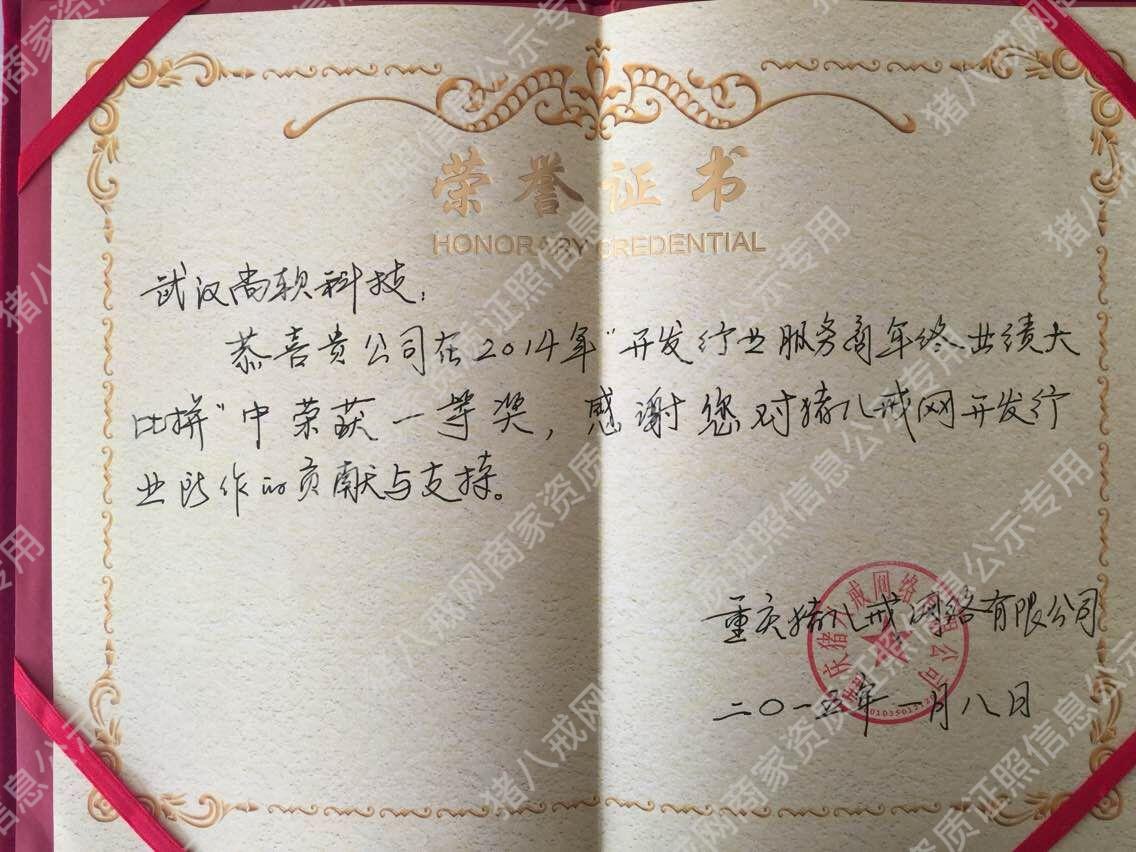 荣誉证书
HONORARY CREDENTIAL
武汉尚软科技:
恭喜贵公司在2014年"开发行业服务商年终业绩大
比拼"中荣获一等奖,感谢您对猪八戒网开发行
业所作的贡献与支持。
重庆猪八戒网络有限公司
二〇一五年一月八日
猪八戒网商家资质证照信息公示专用